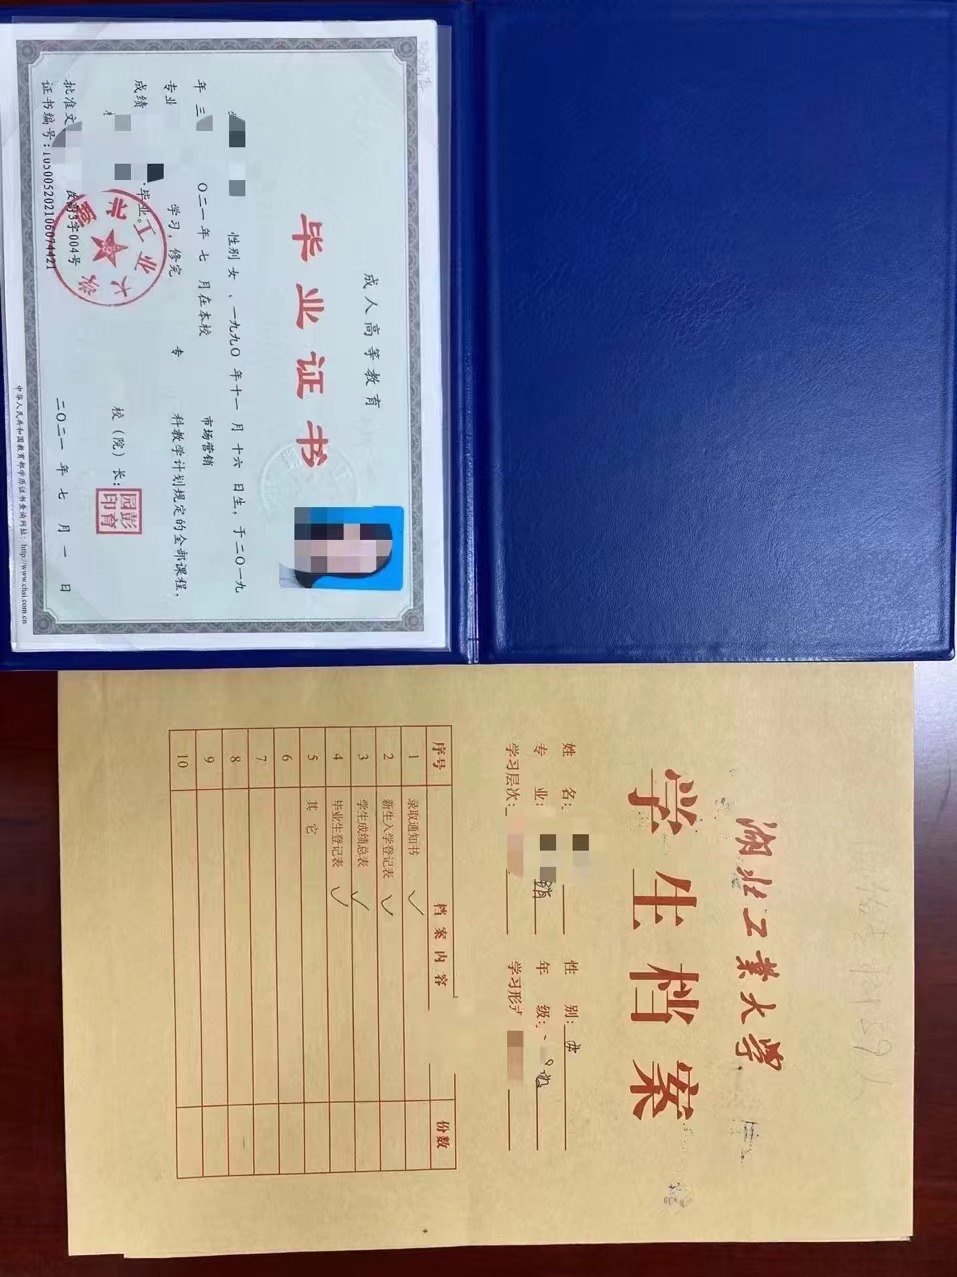 成人高等教育
毕业证书
性别 女 ，一九九〇 年 十一 月 十六 日生，于二〇一九
年 三 〇二一 年 七 月在本校 市场营销
专业 学习，修完 专 科教学计划规定的全部课程，
成绩 毕业。
湖北工业大学
校（院）长：
彭育园印
批准文 改高3字004号
证书编号：105005202106074421
二〇二一 年 七 月 一 日
中华人民共和国教育部学历证书查询网址：http://www.chsi.com.cn
59人
湖北工業大學
学生档案
姓 名： 性 别：女
专 业： 销 年 级： 9级
学习层次： 学习形式
序号 档案内容 份数
1 录取通知书 ✓
2 新生入学登记表 ✓
3 学生成绩总表 ✓
4 毕业生登记表 ✓
5 其 它
6
7
8
9
10